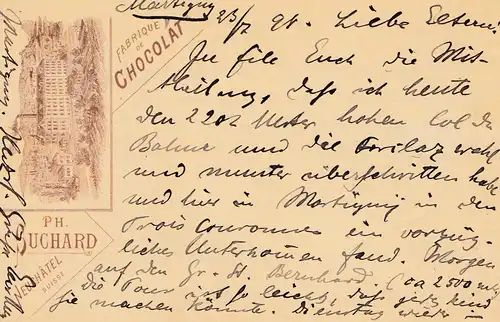 Martigny 23/7 91. Liebe Eltern!
In Eile Euch die Mit-
theilung, daß ich heute
den 2202 Meter hohen Col de
Balme und die Forclaz wohl
und munter überschritten habe
und hier in Martigny in den
Trois Couronnes ein vorzüg-
liches Unterkommen fand. Morgen
auf den Gr. St. Bernhard. (ca 2500 m)
die Tour ist so leicht, daß jedes Kind
sie machen könnte. Dienstag wieder in
FABRIQUE
DE
CHOCOLAT
PH.
SUCHARD
NEUCHATEL
SUISSE
Martigny. Herzl. Grüße